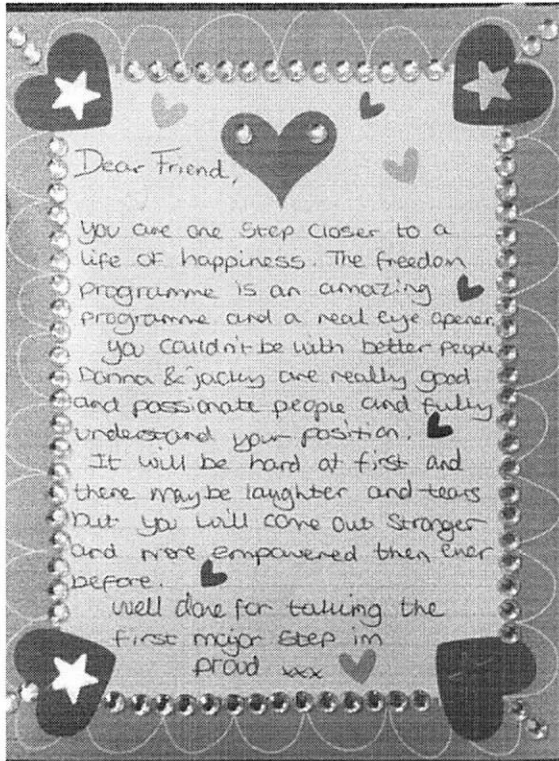 Dear Friend,
you are one step closer to a
life of happiness. The freedom
programme is an amazing
programme and a real eye opener.
you couldn't be with better people
Donna & jacky are really good
and passionate people and fully
understand your position.
It will be hard at first and
there may be laughter and tears
but you will come out stronger
and more empowered then ever
before.
well done for taking the
first major step im
proud xxx